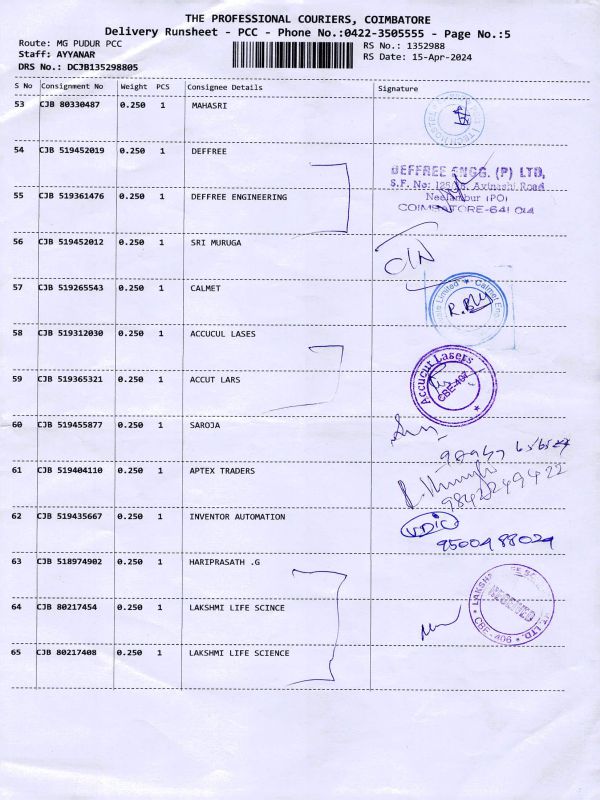 THE PROFESSIONAL COURIERS, COIMBATORE
Delivery Runsheet - PCC - Phone No.:0422-3505555 - Page No.:5
Route: MG PUDUR PCC
RS No.: 1352988
Staff: AYYANAR
RS Date: 15-Apr-2024
DRS No.: DCJB135298805
S No Consignment No Weight PCS Consignee Details Signature
53 CJB 80330487 0.250 1 MAHASRI
54 CJB 519452019 0.250 1 DEFFREE
DEFFREE ENGG. (P) LTD,
S.F. No: Avinashi Road
55 CJB 519361476 0.250 1 DEFFREE ENGINEERING
Neelambur (PO)
COIMBATORE-641 014
56 CJB 519452012 0.250 1 SRI MURUGA
57 CJB 519265543 0.250 1 CALMET
Limited * Calmet
58 CJB 519312030 0.250 1 ACCUCUL LASES
Accucut Lasers
CBE-407
59 CJB 519365321 0.250 1 ACCUT LARS
60 CJB 519455877 0.250 1 SAROJA
61 CJB 519404110 0.250 1 APTEX TRADERS
9842249422
62 CJB 519435667 0.250 1 INVENTOR AUTOMATION
VDIC
9500488029
63 CJB 518974902 0.250 1 HARIPRASATH .G
64 CJB 80217454 0.250 1 LAKSHMI LIFE SCINCE
RECEIVED
CBE-406 * LTD.
65 CJB 80217408 0.250 1 LAKSHMI LIFE SCIENCE